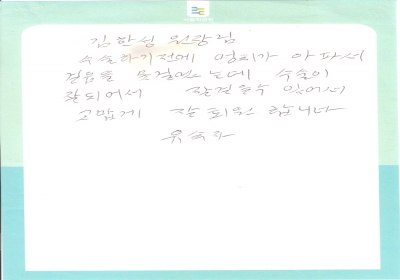 김한성 원장님
수술하기전에 엉치가 아파서
걸음을 못걸었는데 수술이
잘되어서 잘걸을수 있어서
고맙게 잘 회원합니다